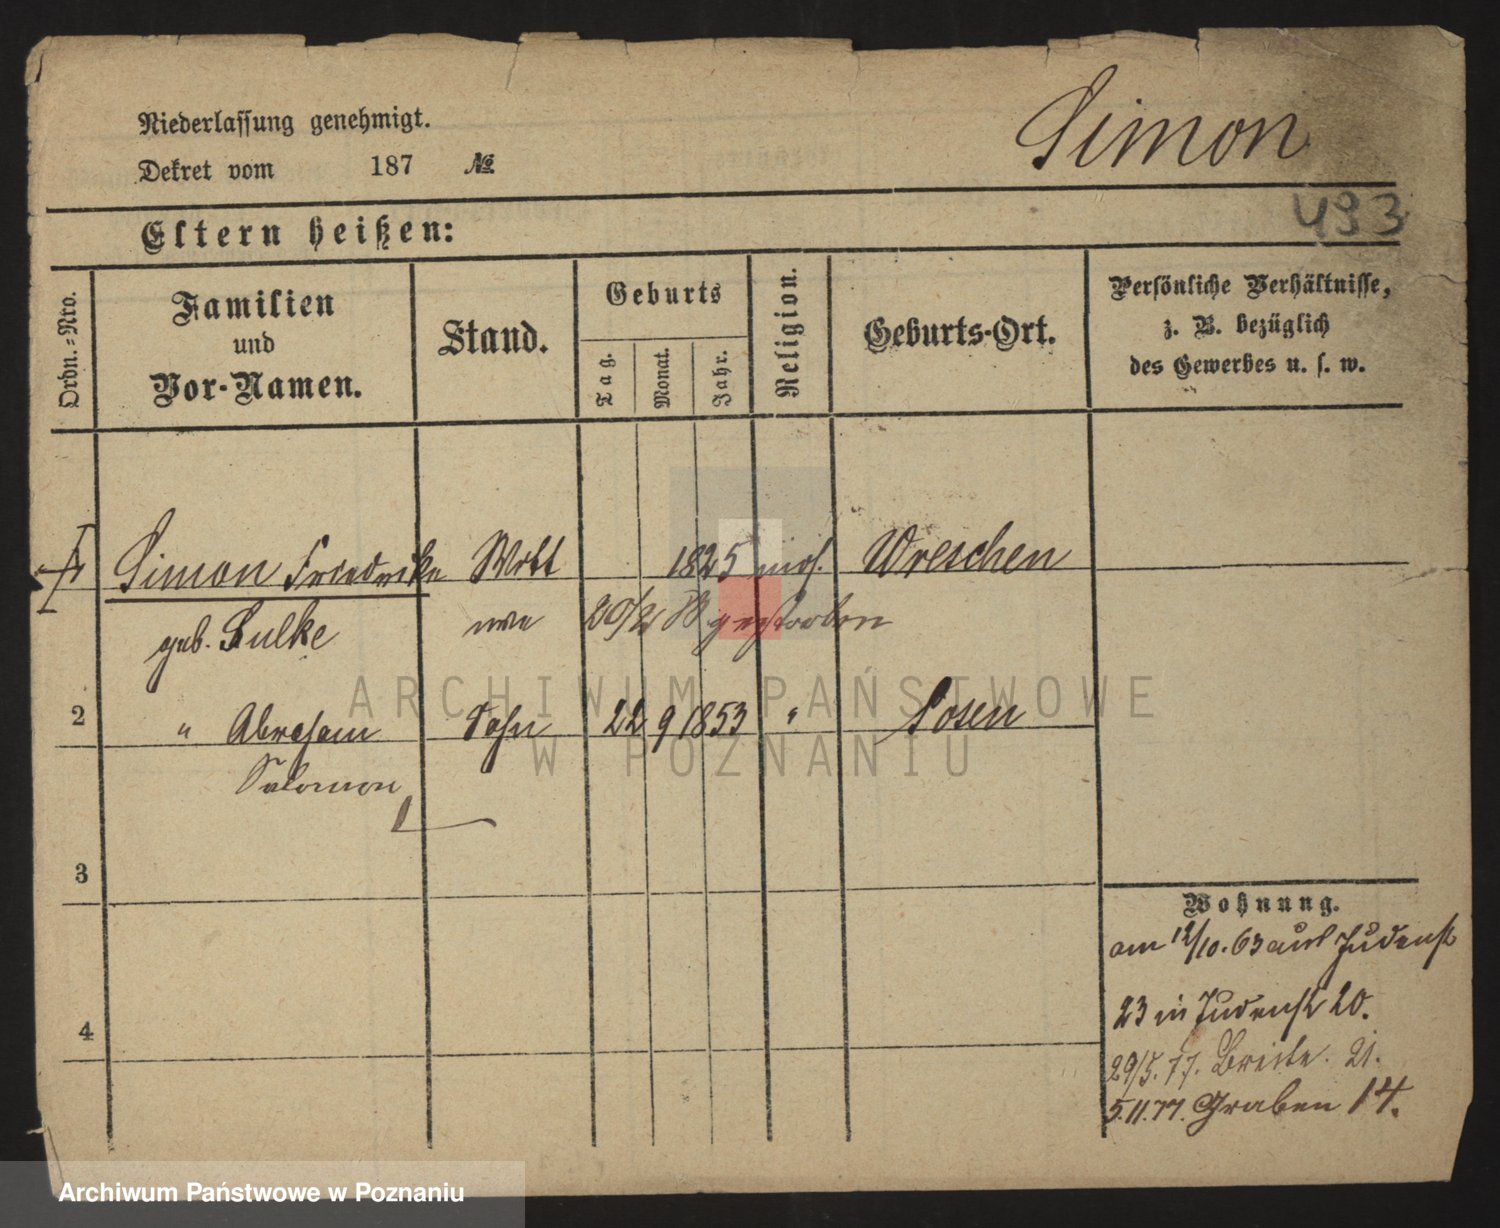 Niederlassung genehmigt.
Dekret vom 187 №
Simon
493
Eltern heißen:
Ordn.-Nro.
Familien
und
Vor-Namen.
Stand.
Geburts
Tag.
Monat.
Jahr.
Religion.
Geburts-Ort.
Persönliche Verhältnisse,
z. B. bezüglich
des Gewerbes u. s. w.
Simon Friedrike Witt 1825 mos. Wreschen
geb. Lulke we 20/2 gestorben
2 " Abraham Sohn 22 9 1853 " Posen
Salomon
3
4
Wohnung.
am 12/10. 63 aus Judenst
23 in Judenst 20.
29/5. 77. Breite. 21.
5.11.77. Graben 14.
ARCHIWUM PAŃSTWOWE
W POZNANIU
Archiwum Państwowe w Poznaniu